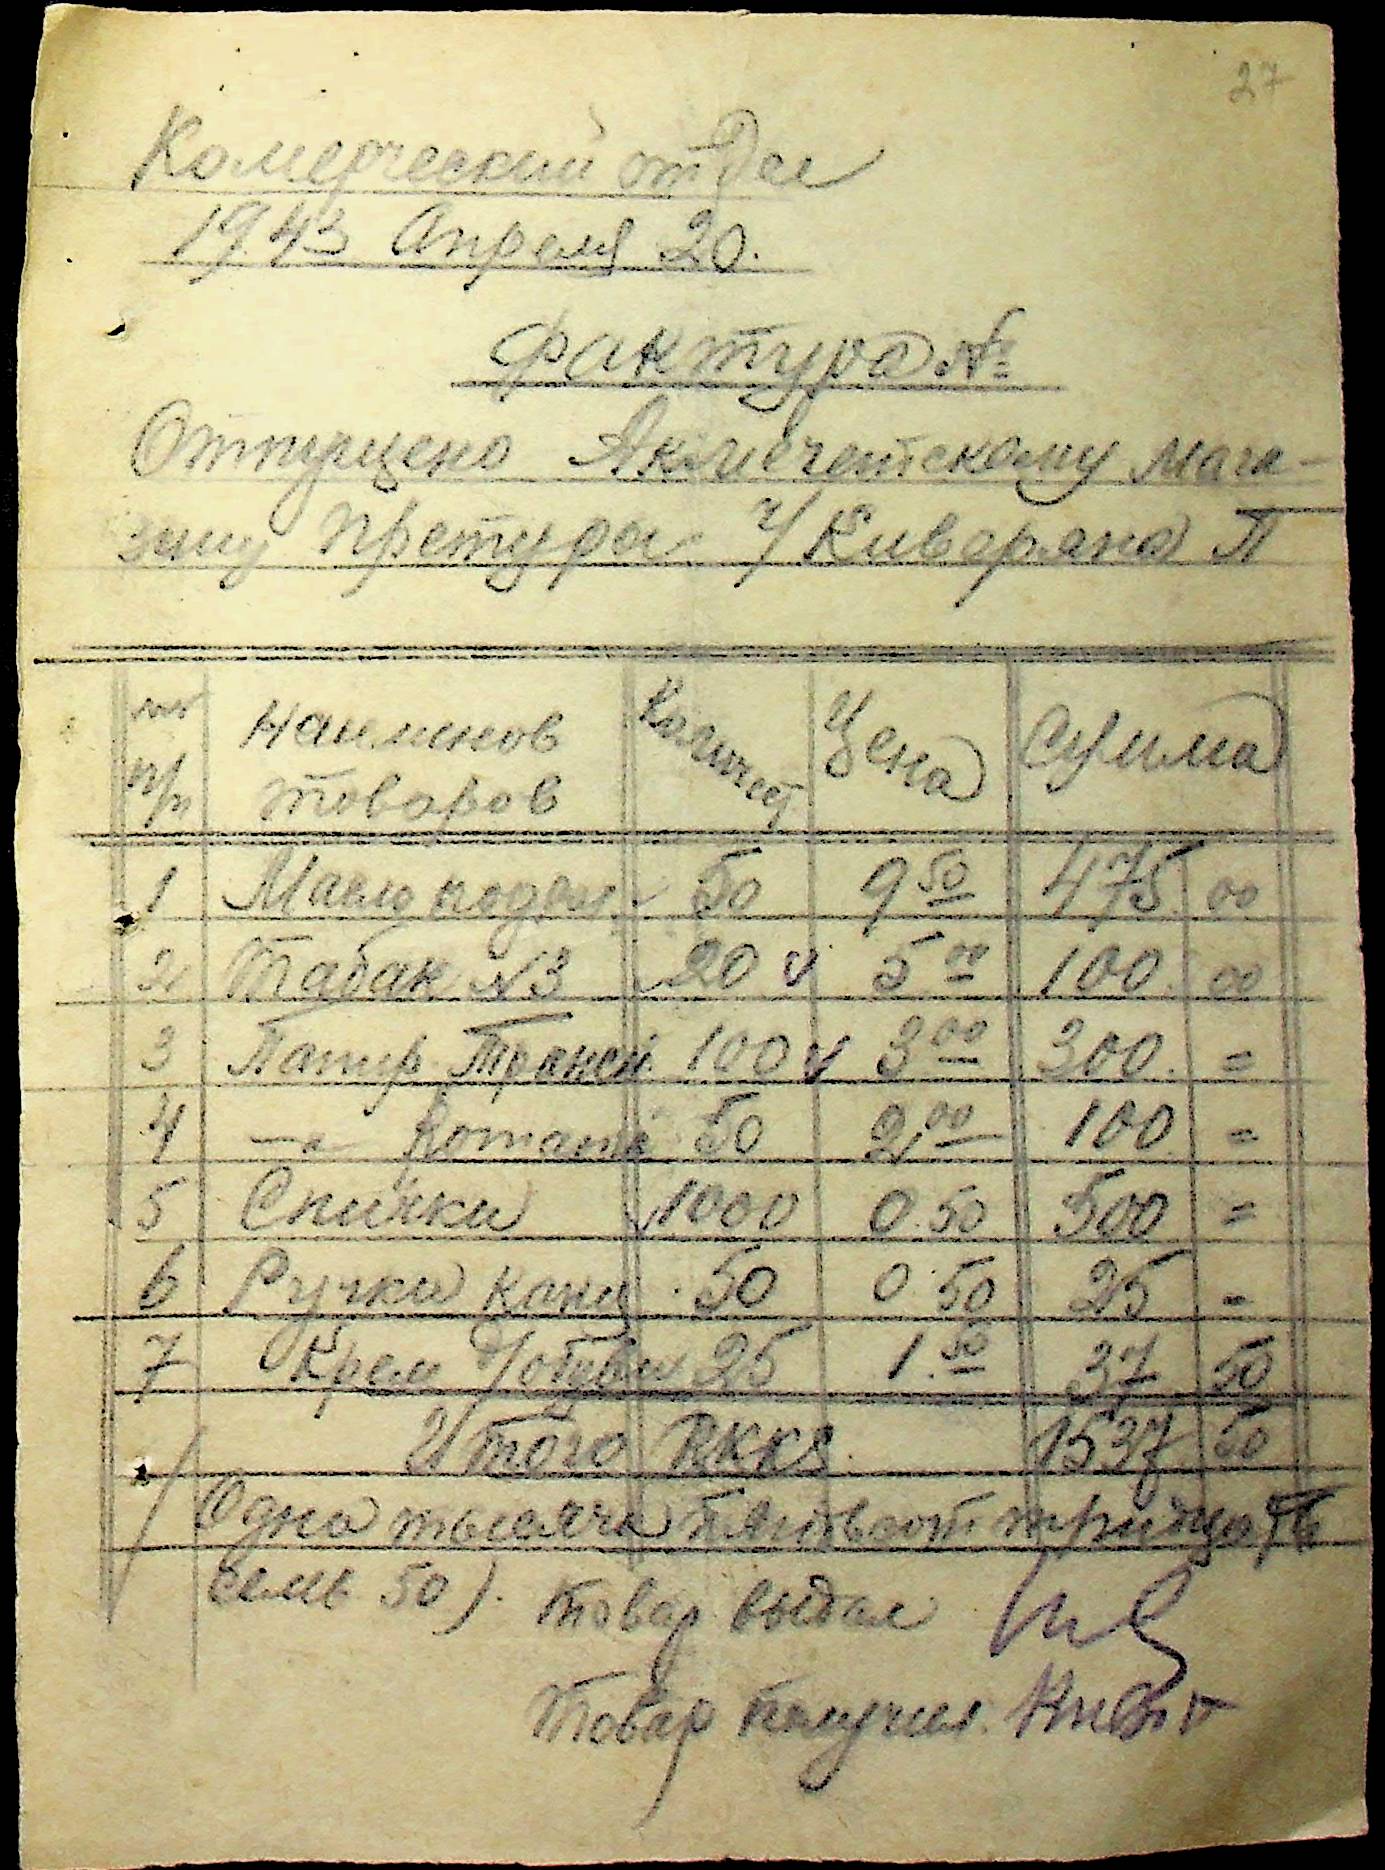 27
Комерческий отдел
1943 Апреля 20.
Фактура №
Отпущено Акмечетскому мага-
зину Претуры ч/ Киворяна П
№№ п/п наименов товаров Количест Цена Сумма
1 Масло подсл. 50 9 50 475 00
2 Табак №3 20 v 5 00 100. 00
3 Папир. 100 v 3 00 300. =
4 —"— 50 2 00 100 =
5 Спички 1000 0.50 500 =
6 Ручки канц 50 0.50 25 =
7 Крем д/обуви 25 1.50 37 50
Итого RKKS. 1537 50
(Одна тысяча пятьсот тридцать
семь 50). Товар выдал
Товар получил.